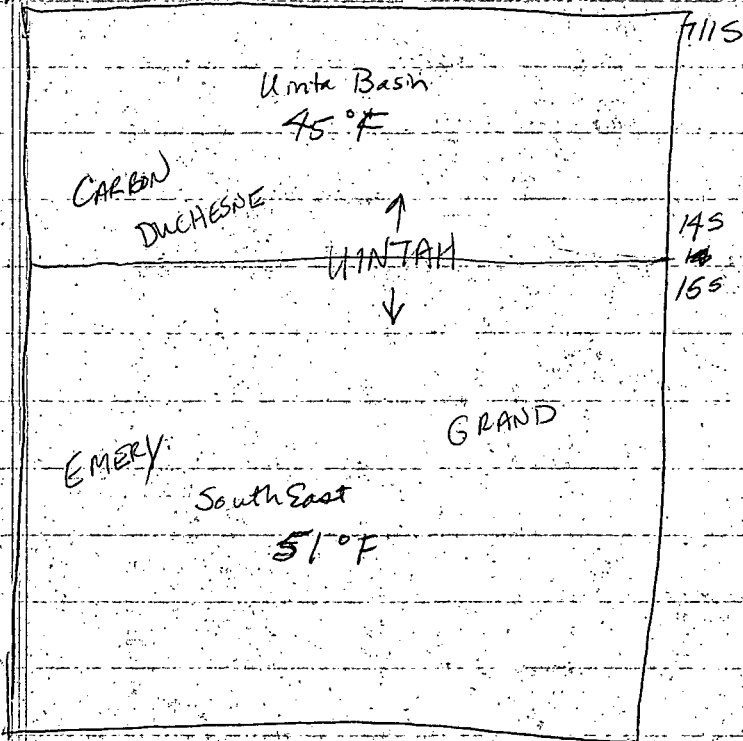 T11S
Uinta Basin
45°F
CARBON
DUCHESNE
14S
UINTAH
15S
GRAND
EMERY
SouthEast
51°F